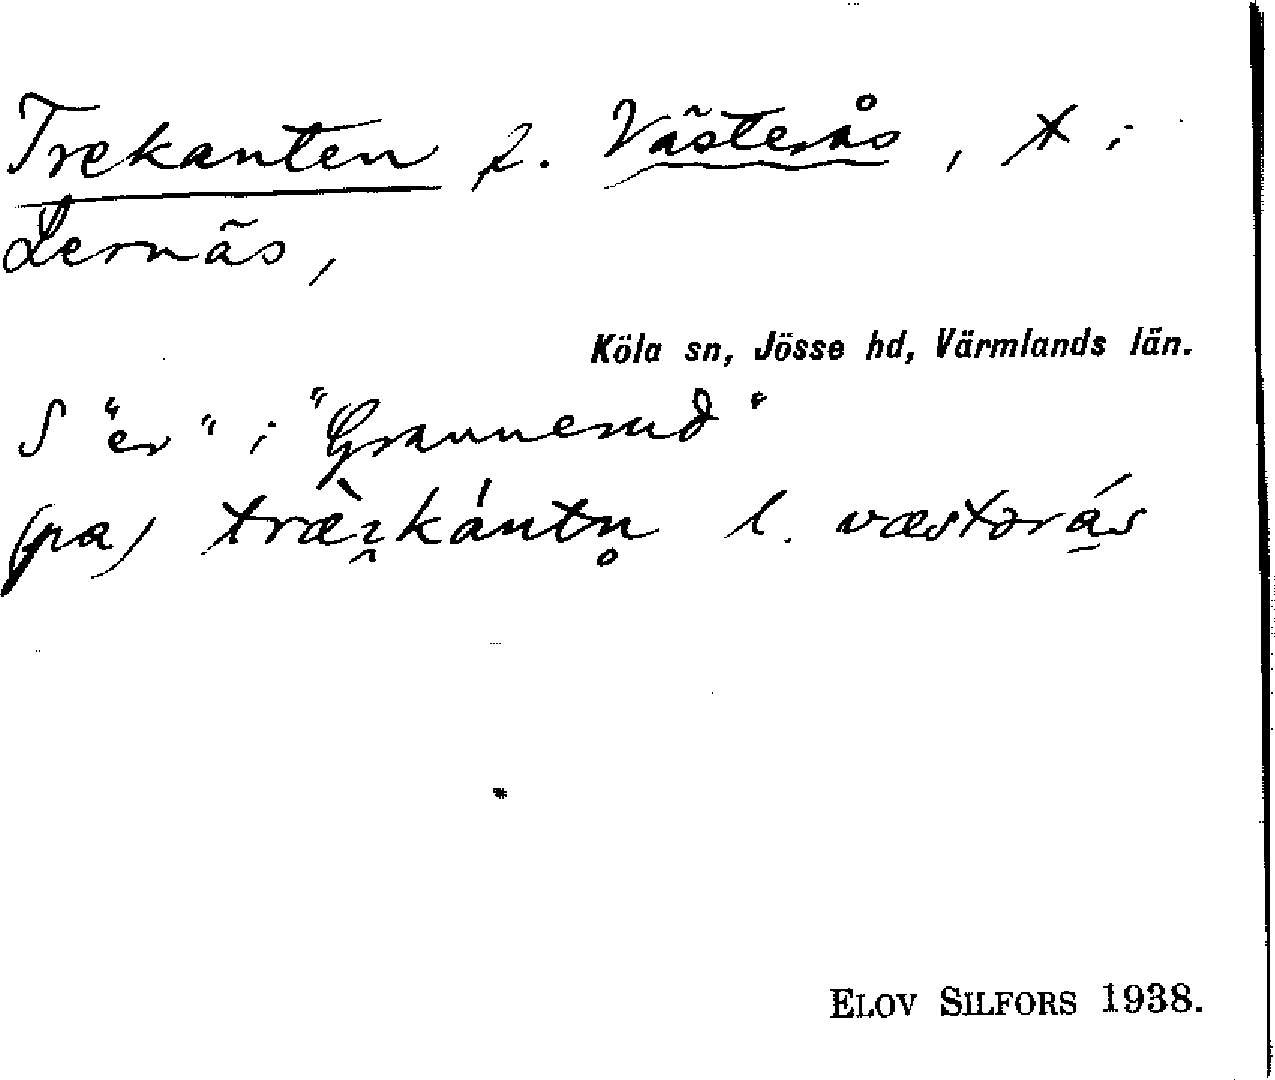 Trekanten l. Västerås, t i
Lernäs,
Köla sn, Jösse hd, Värmlands län.
S "er" i "Grannerud"
(pa) træ̀kántn̥ l. væstərás
ELOV SILFORS 1938.